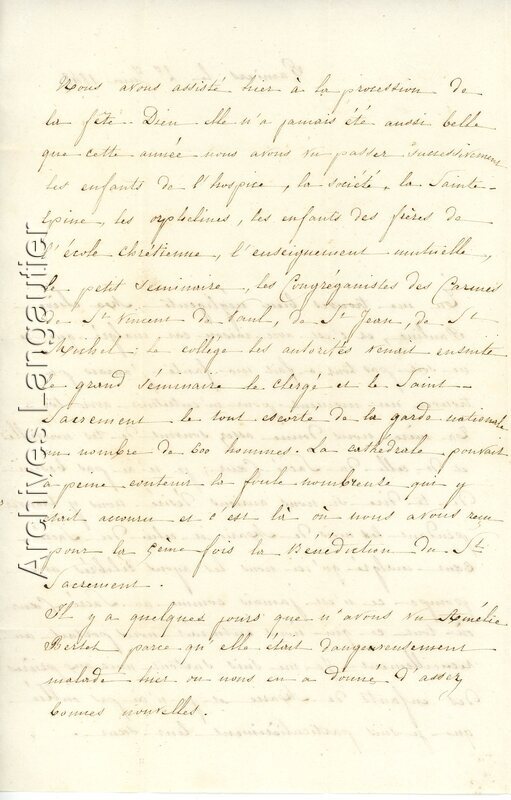 Nous avons assisté hier à la procession de
la fête-Dieu elle n'a jamais été aussi belle
que cette année nous avons vu passer successivement
les enfants de l'hospice, la société, la Sainte-
Epine, les orphelines, les enfants des frères de
l'école chrétienne, l'enseignement mutuelle,
le petit Séminaire, les Congréganistes des Carmes
de St Vincent de Paul, de St Jean, de St
Michel; le collège les autorités venait ensuite
le grand Séminaire le clergé et le Saint-
Sacrement le tout escorté de la garde nationale
au nombre de 600 hommes. La cathédrale pouvait
à peine contenir la foule nombreuse qui y
était accouru et c'est là où nous avons reçu
pour la 5ème fois la Bénédiction du St
Sacrement.
Il y a quelques jours que n'avons vu Amélie
parce qu'elle était dangereusement
malade hier on nous en a donné d'assez
bonnes nouvelles.
Archives Langautier